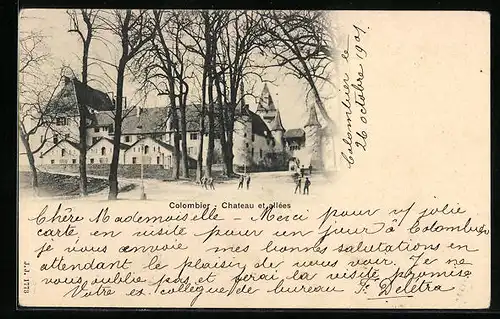 Colombier le
26 octobre 1901
Colombier - Chateau et allées
Chère Mademoiselle - Merci pour v/ jolie
carte en visite pour un jour à Colombier
je vous envoie mes bonnes salutations en
attendant le plaisir de vous voir. Je ne
vous oublie pas et ferai la visite promise
Votre ex. collègue de bureau Deletra
J.J. 1778